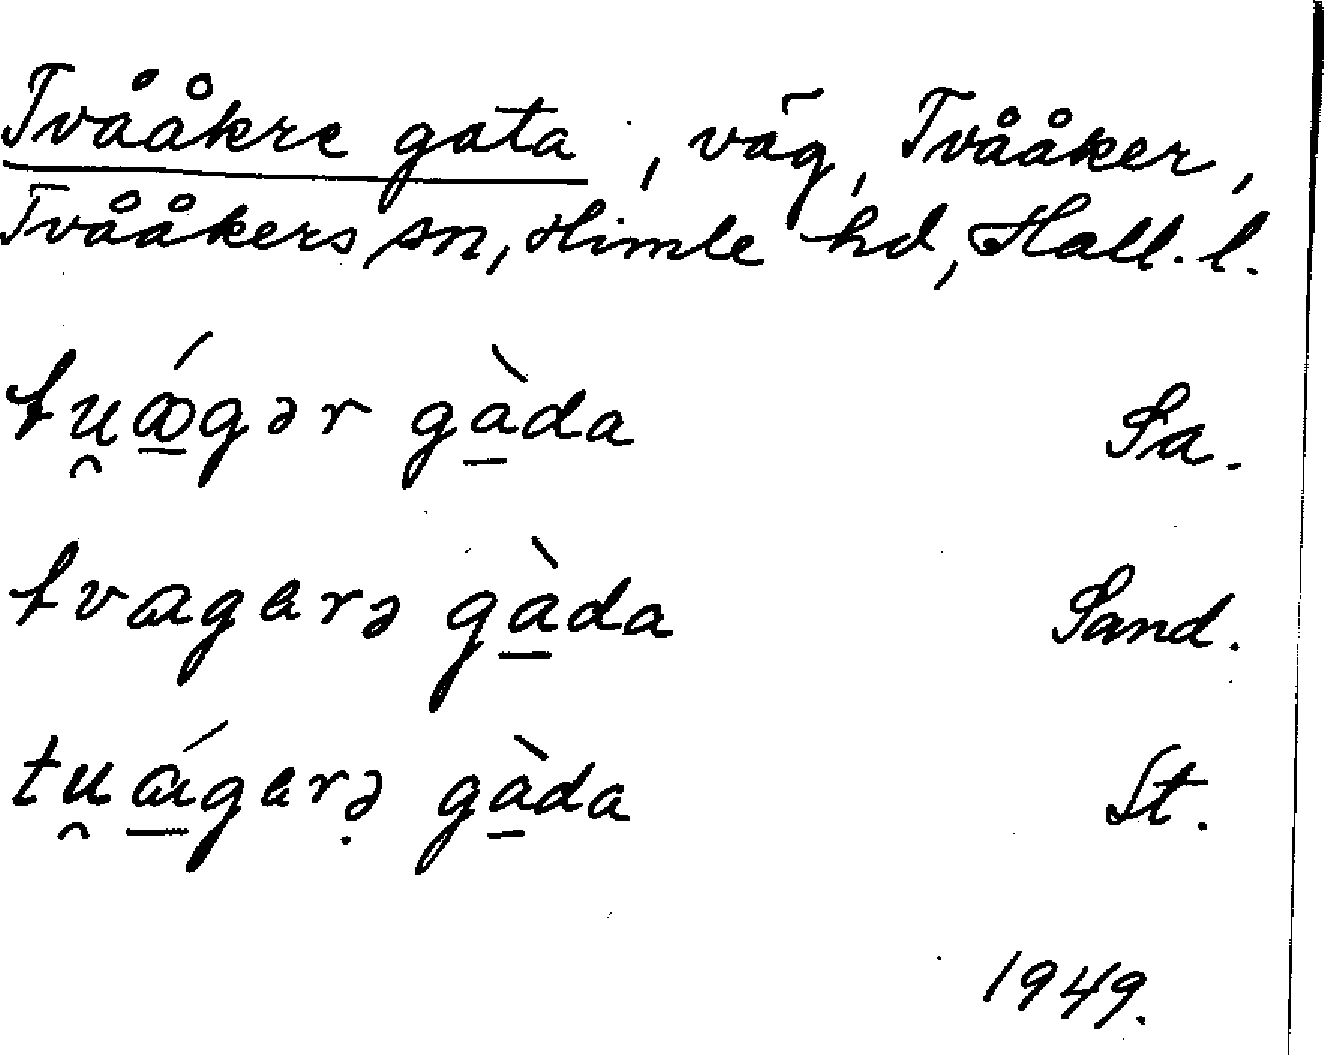 Tvååkre gata, väg, Tvååker,
Tvååkers sn, Himle hd, Hall. l.
tu̯ǿ̱gər gà̱da Sa.
tvagarə gà̱da Sand.
tu̯á̱garə̣ gà̱da St.
1949.